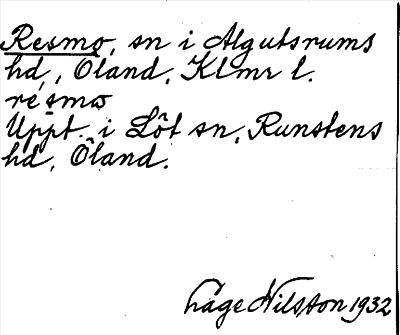 Resmo, sn i Algutsrums
hd, Öland, Klmr l.
résmω
Uppt. i Löt sn, Runstens
hd, Öland.
Håge Nilsson 1932